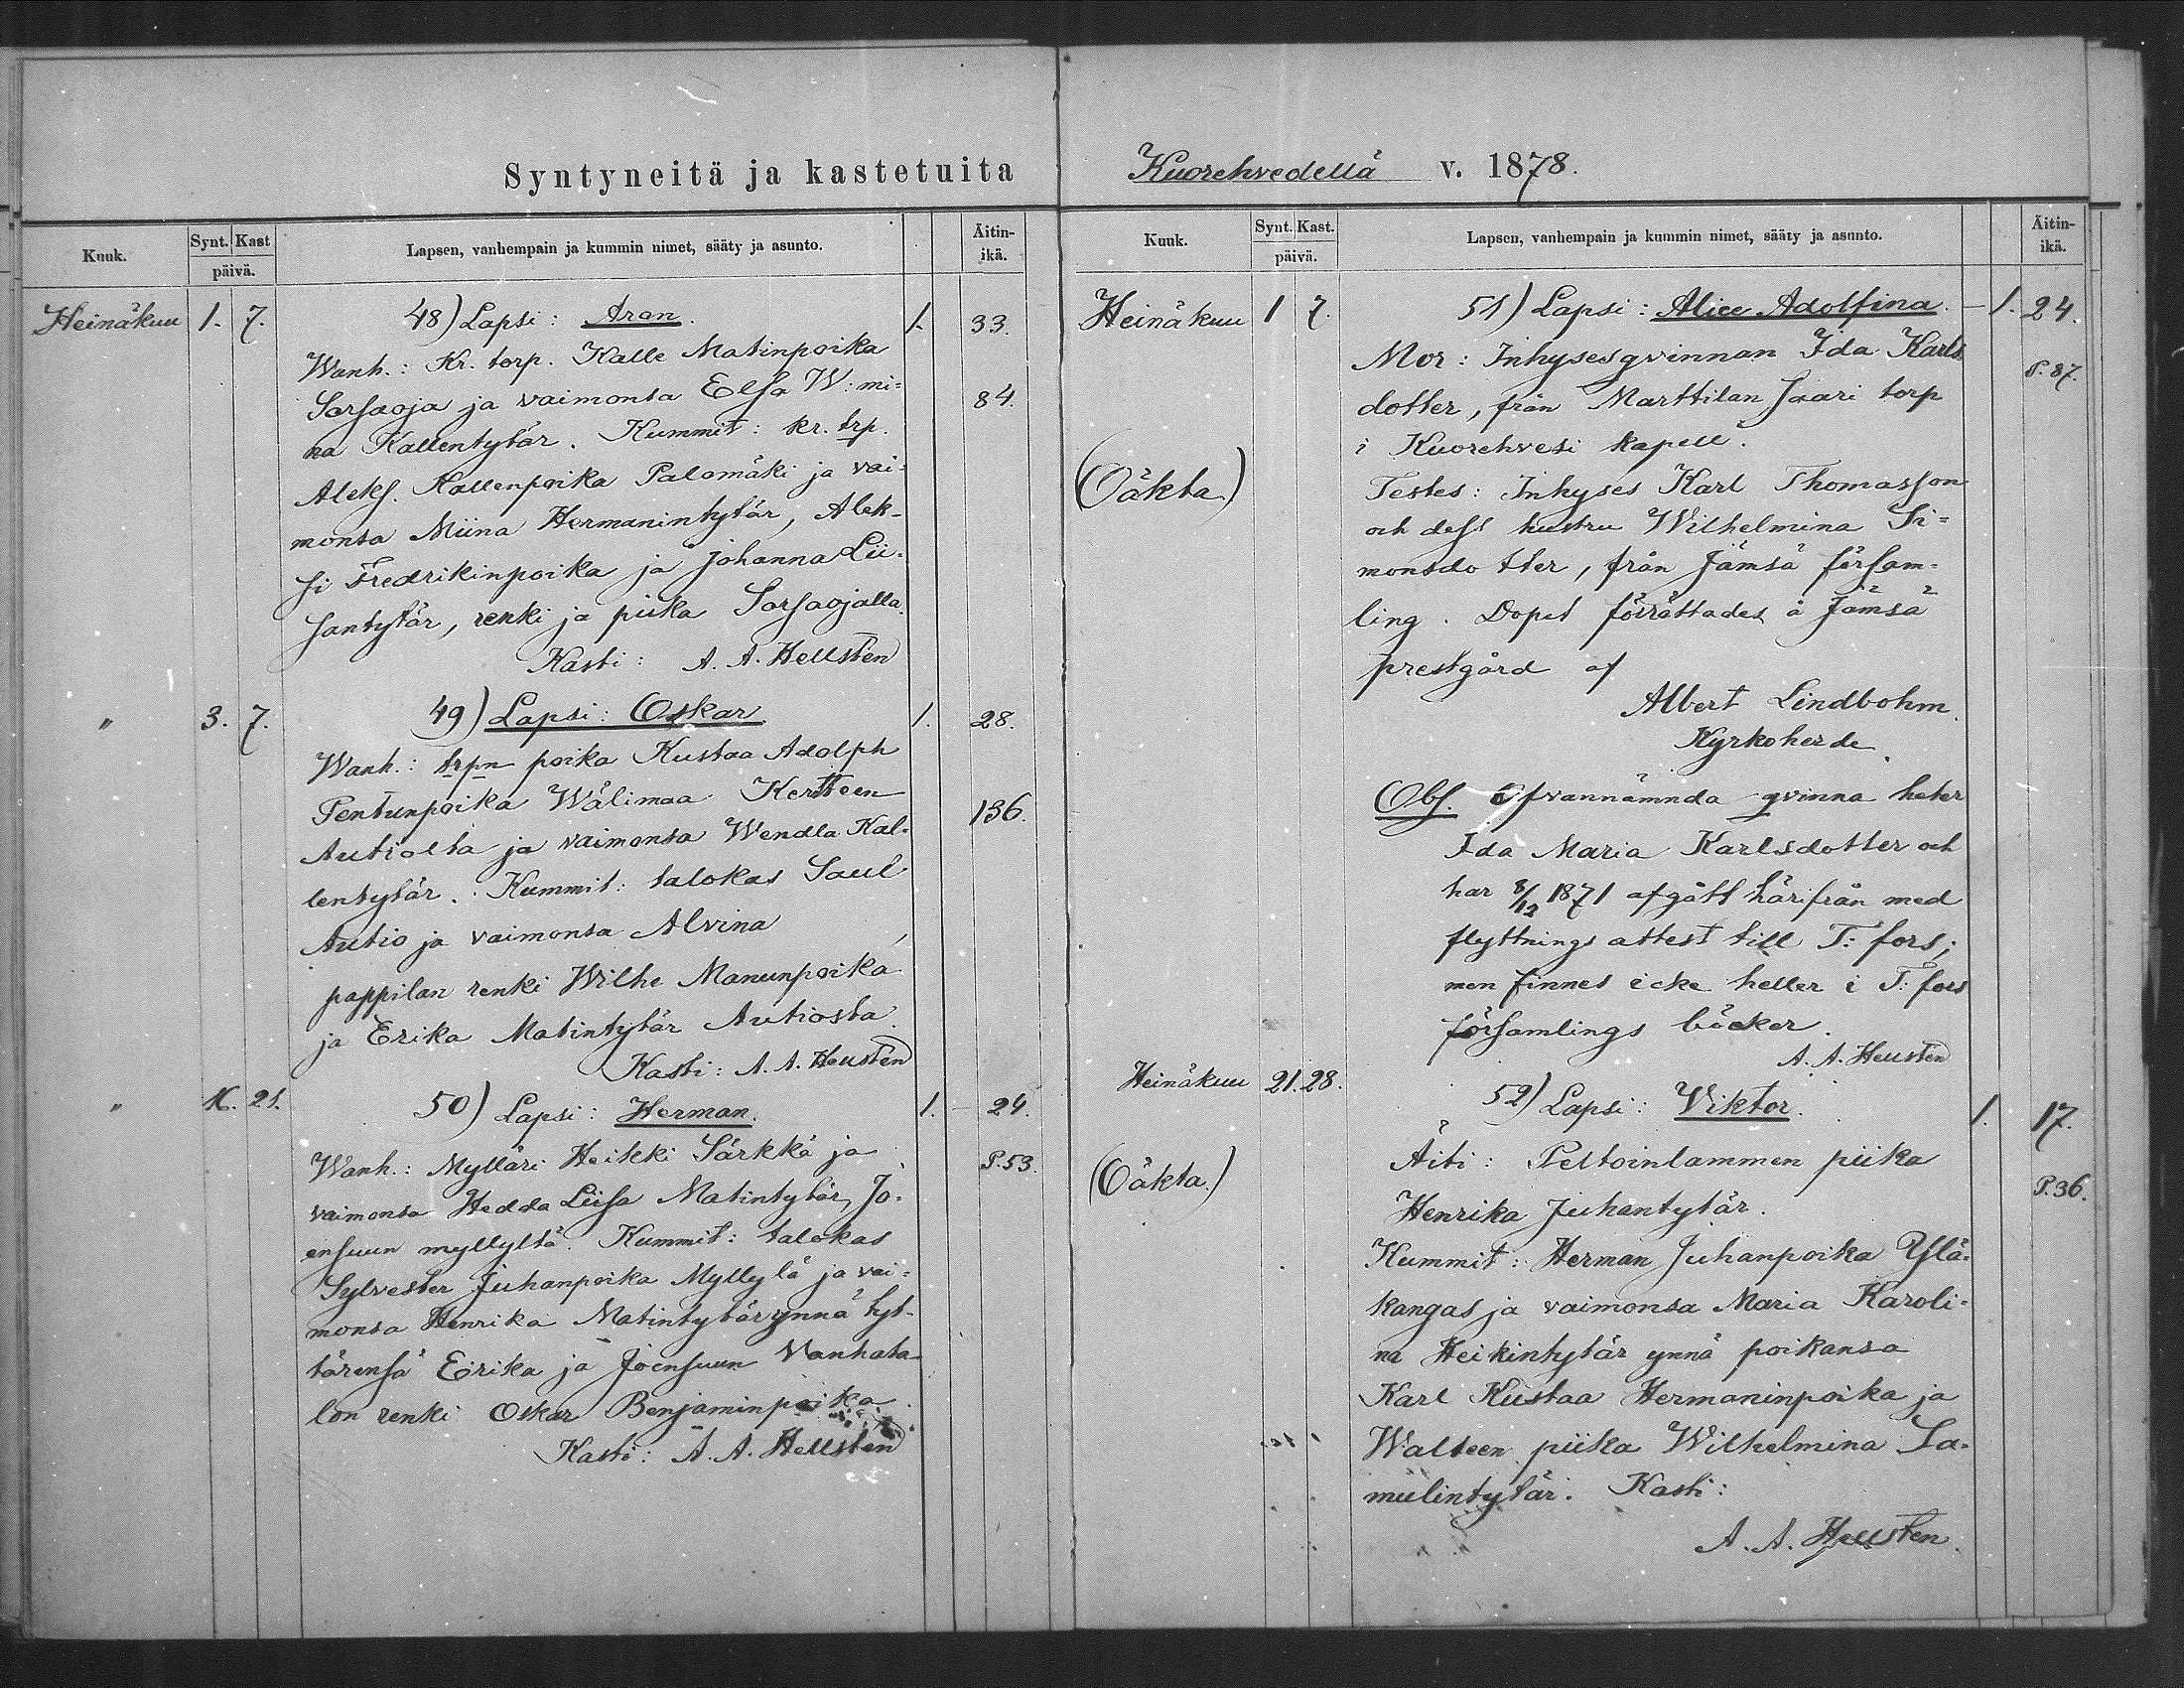 Syntyneitä ja kastetuita
Kuuk. Synt. Kast päivä. Lapsen, vanhempain ja kummin nimet, sääty ja asunto. Äitin-ikä.
Heinäkuu 1. 7. 48) Lapsi: Aron. 1. 33.
Wanh.: Kr. torp. Kalle Matinpoika
Sorsaoja ja vaimonsa Elsa W:mi= 84.
na Kallentytär. Kummit: kr. trp.
Aleks. Kallenpoika Palomäki ja vai-
monsa Miina Hermanintytär, Alek-
si Fredrikinpoika ja Johanna Lii-
santytär, renki ja piika Sorsaojalla.
Kasti: A. A. Hellsten
" 3. 7. 49) Lapsi: Oskar. 1. 28.
Wanh.: trpn poika Kustaa Adolph
Pentunpoika Wälimaa Kertteen 136.
Autiolta ja vaimonsa Wendla Kal-
lentytär. Kummit: talokas Saul
Autio ja vaimonsa Alvina ,
pappilan renki Wilhe Manunpoika
ja Erika Matintytär Autiosta.
Kasti: A. A. Hellsten
" 16. 21. 50) Lapsi: Herman. 1. 24.
Wanh.: Mylläri Heikki Särkkä ja P. 53.
vaimonsa Hedda Liisa Matintytär, Jo-
ensuun myllyltä. Kummit: talokas
Sylvester Juhanpoika Myllylä ja vai=
monsa Henrika Matintytär ynnä tyt-
tärensä Eerika ja Joensuun Vanhata-
lon renki Oskar Benjaminpoika.
Kasti: A. A. Hellsten
Kuorehvedellä v. 1878.
Kuuk. Synt. Kast. päivä. Lapsen, vanhempain ja kummin nimet, sääty ja asunto. Äitin-ikä.
Heinäkuu 1 7. 51) Lapsi: Alice Adolfina. - 1. 24.
Mor: Inhysesqvinnan Ida Karls P. 87.
dotter, från Marttilan Saari torp
i Kuorehvesi kapell.
(Oäkta) Testes: Inhyses Karl Thomasson
och dess hustru Wilhelmina Si=
monsdotter, från Jämsä försam-
ling. Dopet förrättades å Jämsä
prestgård af
Albert Lindbohm.
Kyrkoherde.
Obs. Ofvannämnda qvinna heter
Ida Maria Karlsdotter och
har 8/12 1871 afgått härifrån med
flyttnings attest till T:fors;
men finnes icke heller i T:fors
församlings böcker.
A. A. Hellsten
Heinäkuu 21. 28. 52) Lapsi: Viktor. 1. 17.
(Oäkta.) Äiti: Peltoinlammen piika P. 36.
Henrika Juhantytär.
Kummit: Herman Juhanpoika Ylä-
kangas ja vaimonsa Maria Karoli-
na Heikintytär ynnä poikansa
Karl Kustaa Hermaninpoika ja
Walteen piika Wilhelmina Sa-
mulintytär. Kasti:
A. A. Hellsten.